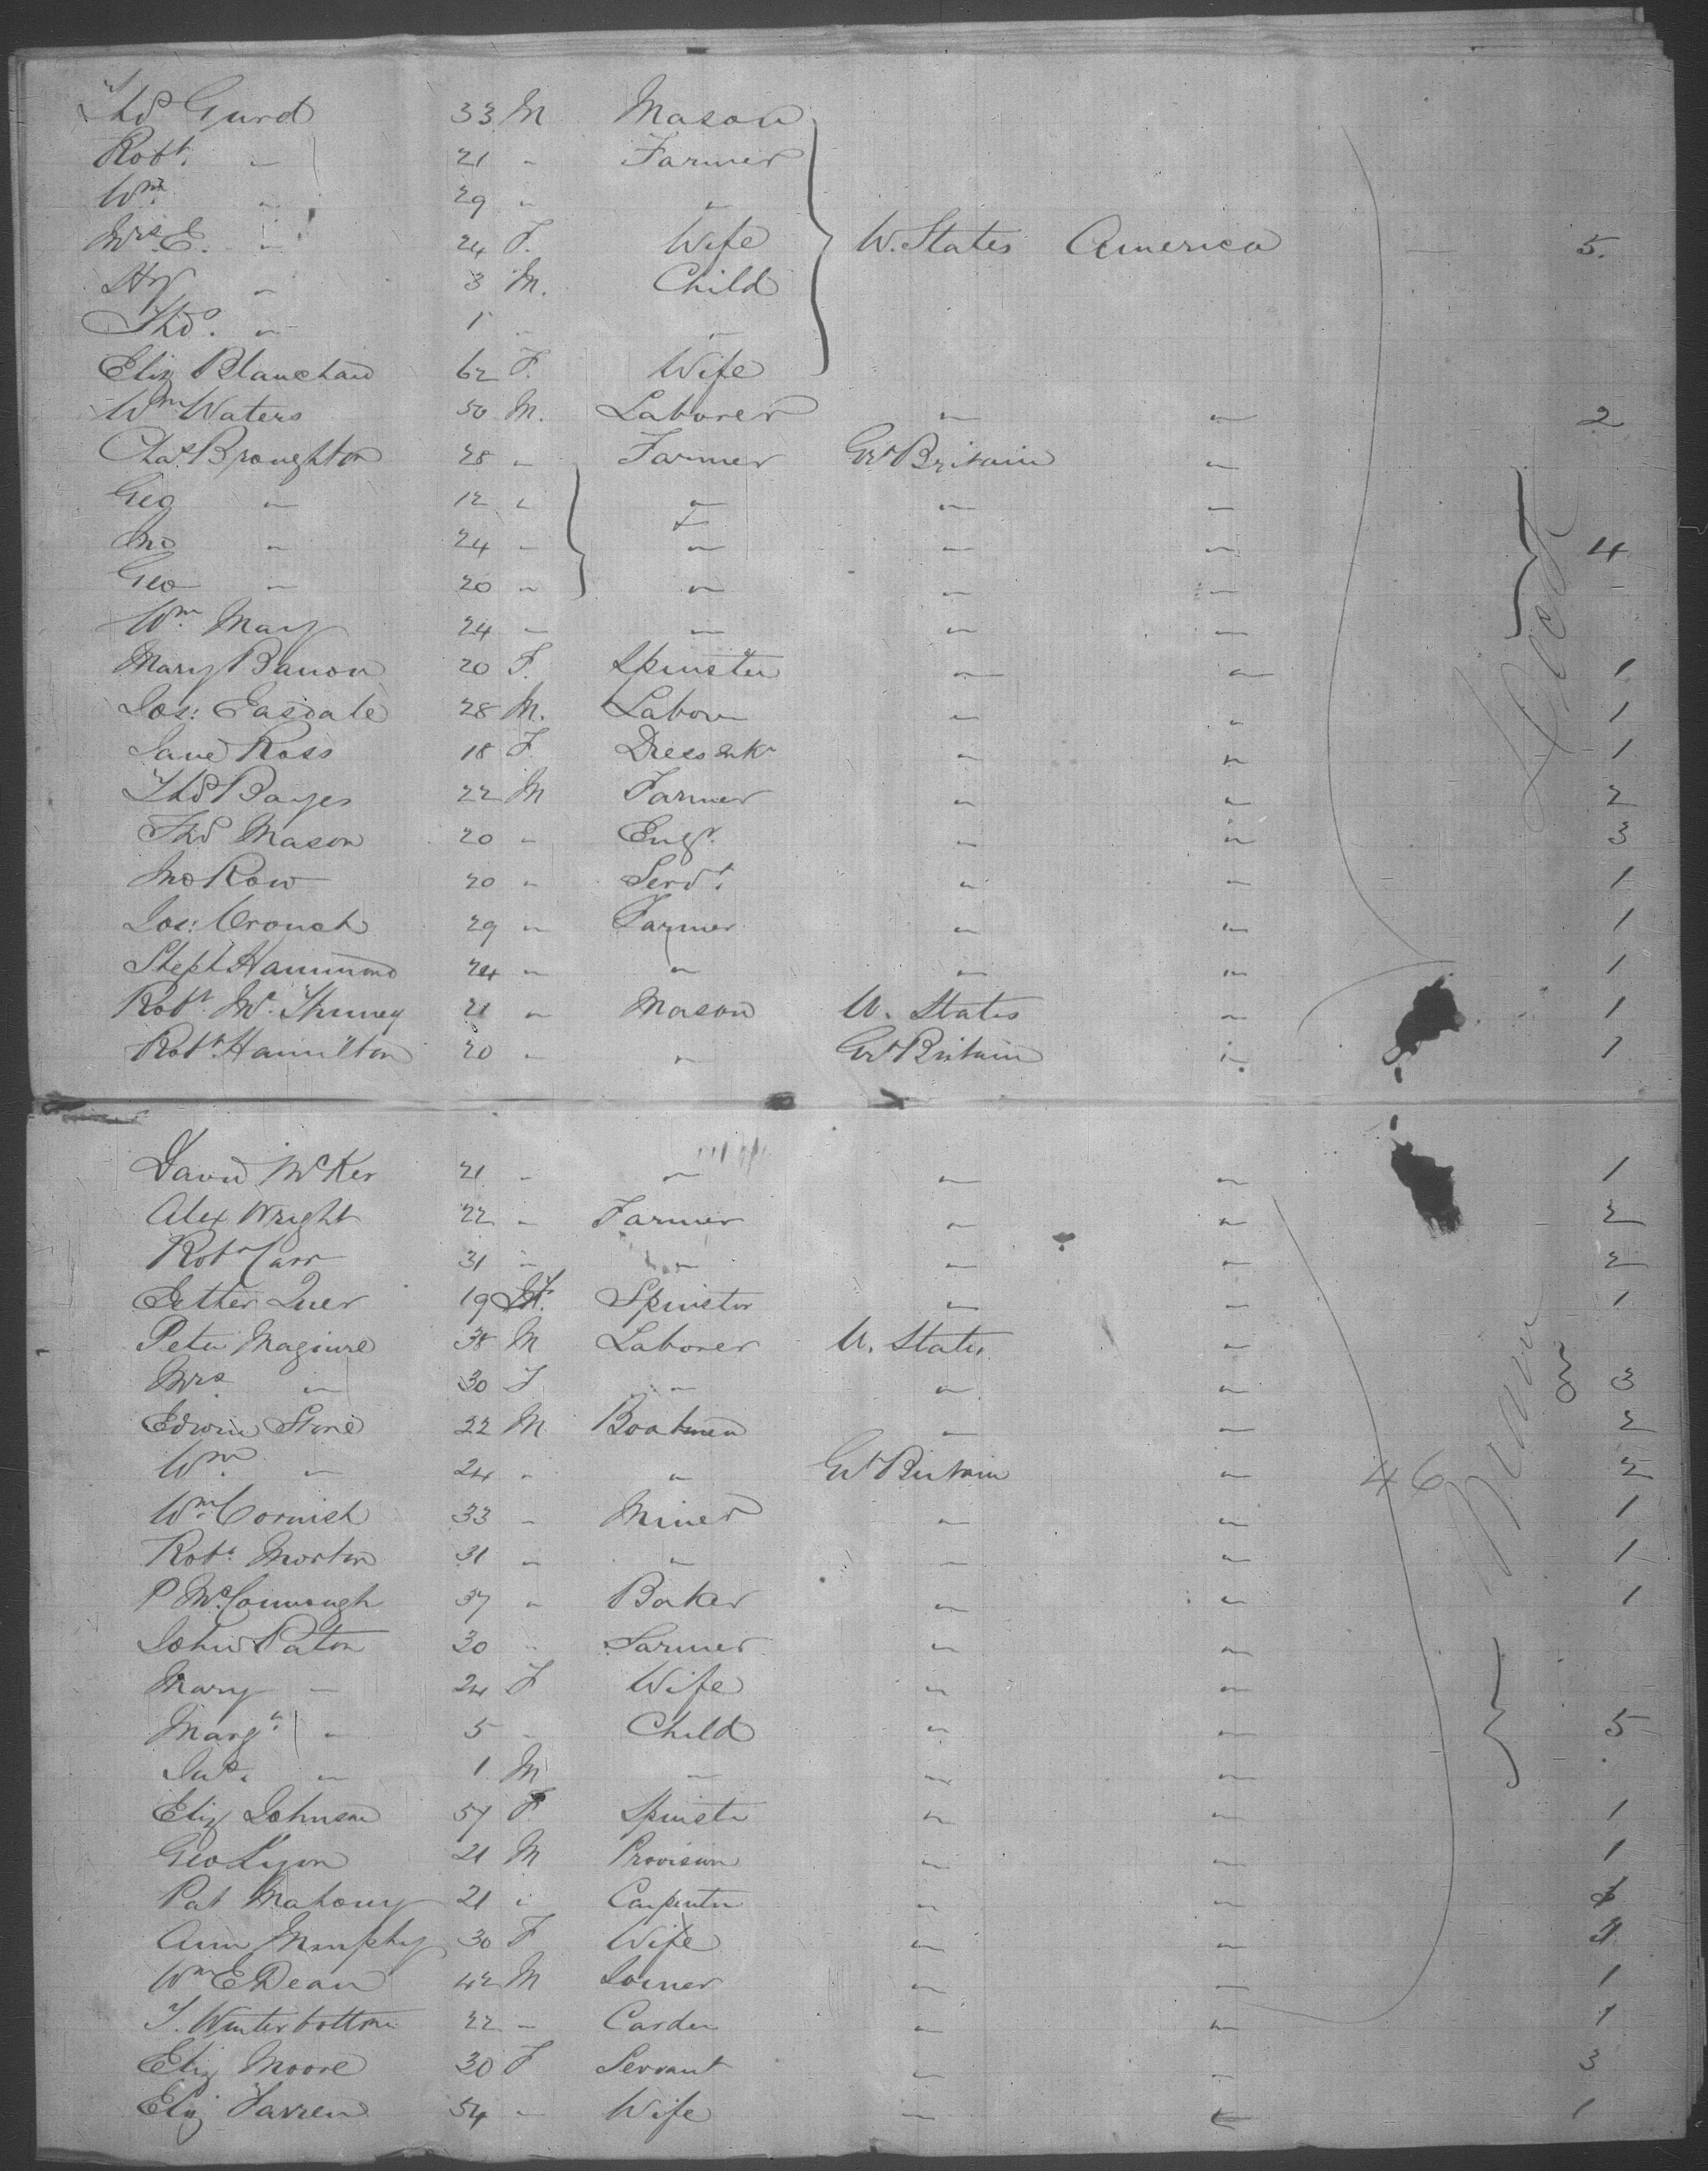 Thos Gurd 33 M Mason
Robt. " 21 " Farmer
Wm. " 29 " "
Mrs E. " 24 F. Wife U. States America — 5.
Hy " 3 M. Child
Thos. " 1 " "
Eliz Blanchard 62 F. Wife
Wm Waters 50 M. Laborer " " 2
Chas Broughton 28 " Farmer Gt Britain "
Geo " 12 " " " "
Jno " 24 " " " " 4
Geo " 20 " " " "
Wm. May 24 " " " "
Mary Banon 20 F. Spinster " " 1
Jos: Easdale 28 M. Labour " " 1
Jane Ross 18 F Dressmkr " " 1
Thos Bayes 22 M Farmer " " 2
Thos Mason 20 " Engr. " " 3
Jno Row 20 " Servt. " " 1
Jos: Crouch 29 " Farmer " " 1
Steph Hammond 24 " " " " 1
Robt Mc 21 " Mason U. States " 1
Robt. Hamilton 20 " " Gt Britain " 1
David McKer 21 " " " " 1
Alex Wright 22 " Farmer " " 2
Robt Carr 31 " " " " 2
19 F. Spinster " " 1
Peter Maguire 38 M Laborer U. States " 
Mrs " 30 F " " " 3
Edwin Stone 22 M Boatmen " " 2
Wm. " 24 " " Gt Britain " 46 2
Wm. Cornish 33 " Miner " " 1
Robt. Morton 31 " " " " 1
P McConnough 37 " Baker " " 1
John Paton 30 " Farmer " "
Mary " 24 F Wife " "
Margt. " 5 " Child " " 5
Jas. " 1 M " " "
Eliz Johnson 57 F. Spinster " " 1
Geo Lyon 21 M Provision " " 1
Pat Mahony 21 " Carpenter " " 1
Ann Murphy 30 F Wife " " 1
Wm E Dean 42 M Joiner " " 1
T. Winterbottom 22 " Carder " " 1
Eliz Moore 30 F Servant " " 3
Eliz Farren 54 " Wife " " 1